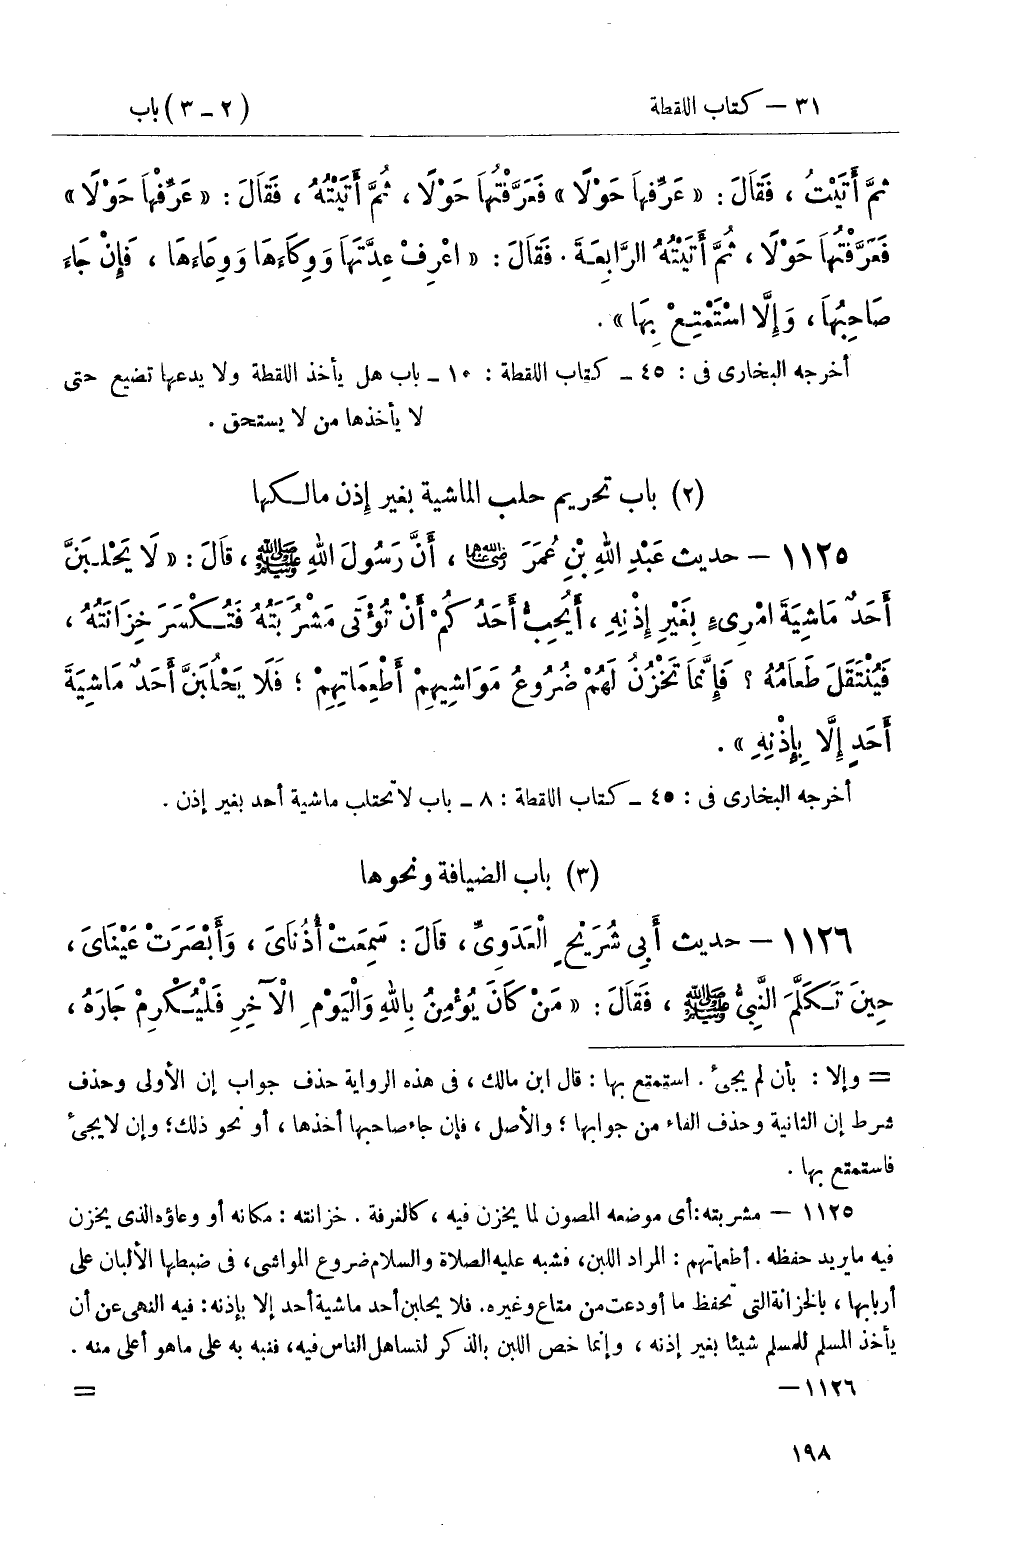 ٣١ – كتاب اللقطة
(٢ – ٣) باب
ثمَّ أَتَيْتُ ، فَقَالَ : « عَرِّفْهَا حَوْلًا » فَعَرَّفْتُهَا حَوْلًا ، ثُمَّ أَتَيْتُهُ ، فَقَالَ : « عَرِّفْهَا حَوْلًا »
فَعَرَّفْتُهَا حَوْلًا ، ثُمَّ أَتَيْتُهُ الرَّابِعَةَ . فَقَالَ : « اعْرِفْ عِدَّتَهَا وَوِكَاءَهَا وَوِعَاءَهَا ، فَإِنْ جَاءَ
صَاحِبُهَا ، وَإِلَّا اسْتَمْتِعْ بِهَا » .
أخرجه البخارى فى : ٤٥ – كتاب اللقطة : ١٠ – باب هل يأخذ اللقطة ولا يدعها تضيع حتى
لا يأخذها من لا يستحق .
(٢) باب تحريم حلب الماشية بغير إذن مالكها
١١٢٥ – حديث عَبْدِ اللهِ بْنِ عُمَرَ رضي الله عنهما ، أَنَّ رَسُولَ اللهِ ﷺ ، قَالَ : « لَا يَحْلُبَنَّ
أَحَدٌ مَاشِيَةَ امْرِىءٍ بِغَيْرِ إِذْنِهِ ، أَيُحِبُّ أَحَدُكُمْ أَنْ تُؤْتَى مَشْرُبَتُهُ فَتُكْسَرَ خِزَانَتُهُ ،
فَيُنْتَقَلَ طَعَامُهُ ؟ فَإِنَّمَا تَخْزُنُ لَهُمْ ضُرُوعُ مَوَاشِيهِمْ أَطْعِمَاتِهِمْ ؛ فَلَا يَحْلُبَنَّ أَحَدٌ مَاشِيَةَ
أَحَدٍ إِلَّا بِإِذْنِهِ » .
أخرجه البخارى فى : ٤٥ – كتاب اللقطة : ٨ – باب لا تحتلب ماشية أحد بغير إذن .
(٣) باب الضيافة ونحوها
١١٢٦ – حديث أَبِى شُرَيْحٍ الْعَدَوِىِّ ، قَالَ : سَمِعَتْ أُذُنَاىَ ، وَأَبْصَرَتْ عَيْنَاىَ ،
حِينَ تَكَلَّمَ النَّبِىُّ ﷺ ، فَقَالَ : « مَنْ كَانَ يُؤْمِنُ بِاللهِ وَالْيَوْمِ الْآخِرِ فَلْيُكْرِمْ جَارَهُ ،
= وإلا : بأن لم يجىء . استمتع بها : قال ابن مالك ، فى هذه الرواية حذف جواب إن الأولى وحذف
شرط إن الثانية وحذف الفاء من جوابها ؛ والأصل ، فإن جاء صاحبها أخذها ، أو نحو ذلك ؛ وإن لا يجىء
فاستمتع بها .
١١٢٥ – مشربته : أى موضعه المصون لما يخزن فيه ، كالغرفة . خزانته : مكانه أو وعاؤه الذى يخزن
فيه ما يريد حفظه . أطعماتهم : المراد اللبن، فشبه عليه الصلاة والسلام ضروع المواشى، فى ضبطها الألبان على
أربابها ، بالخزانة التى تحفظ ما أودعت من متاع وغيره. فلا يحلبن أحد ماشية أحد إلا بإذنه : فيه النهى عن أن
يأخذ المسلم للمسلم شيئا بغير إذنه ، وإنما خص اللبن بالذكر لتساهل الناس فيه، فنبه به على ما هو أعلى منه .
١١٢٦ –
=
١٩٨